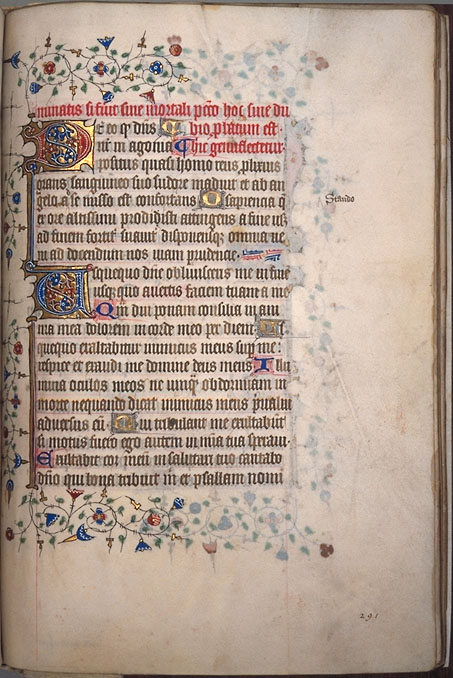 minatis si siue mortali pcto hoc siue du
bio probatum est.
De eo qd dns
nr in agonia Hic genuflectetur.
positus quasi homo reus plixius
orans sanguineo suo sudore maduit et ab an
gelo a se misso est confortatus O sapiencia q
ex ore altissimi prodidisti attingens a fine usq
ad finem fortit suauit disponensq omnia ue
ni ad docendum nos uiam prudencie.
Usquequo dne obliuisceris me in fine
usqquo auertis faciem tuam a me
Quam diu ponam consilia in ani
ma mea dolorem in corde meo per diem Us
quequo exaltabitur inimicus meus sup me:
respice et exaudi me domine deus meus Illu
mina oculos meos ne unq obdormiam in
morte nequando dicat inimicus meus preualui
aduersus eu. Qui tribulant me exultabunt
si motus fuero ego autem in mia tua speraui.
Exultabit cor meum in salutari tuo cantabo
dno qui bona tribuit m et psallam nomi
Stando
291